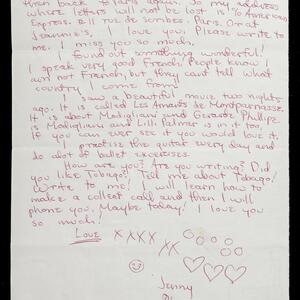 then back to Paris again. So my address
where letters will not be lost is % American
Express. Ell rue de Scribes. Paris. Or at
Jeannie's, I love you. Please write to
me. I miss you so much.
I found out something wonderful!
I speak very good French. People know I
am not French, but they cant tell what
country I come from.
I saw a beautiful movie two nights
ago. It is called Les Amants de Montparnasse.
It is about Modigliani and Gerarde Phillipe
is Modigliani and Lili Palmer is in it too.
If you can ever see it you would love it.
I practise the guitar every day and
do alot of ballet excercises.
How are you? Are you writing? Did
you like Tobago? Tell me about Tobago!
Write to me! I will learn how to
make a collect call and then I will
phone you. Maybe today! I love you
so much!
Love XXXX OOOOO
XX
Jenny